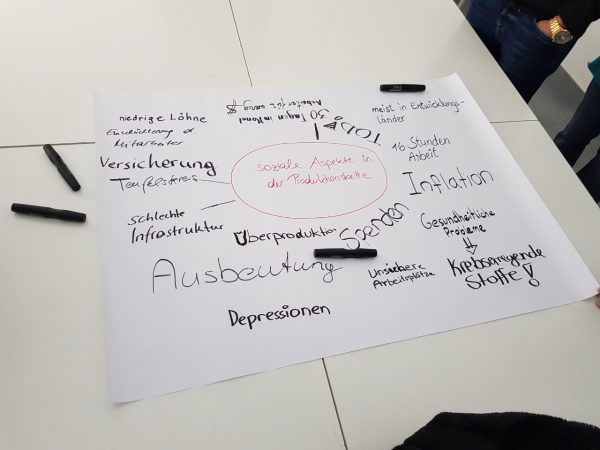 niedrige Löhne
Einschüchterung der
Mitarbeiter
Versicherung
Teufelskreis
Schlechte
Infrastruktur
30 Tagen im Monat
Arbeiten für wenig $
TOD!
meist in Entwicklungs-
länder
16 Stunden
Arbeit
soziale Aspekte in
der Produktionskette
Inflation
Überproduktion
Spenden
Gesundheitliche
Probleme
Krebserregende
Stoffe!
Ausbeutung
Unsichere
Arbeitsplätze
Depressionen